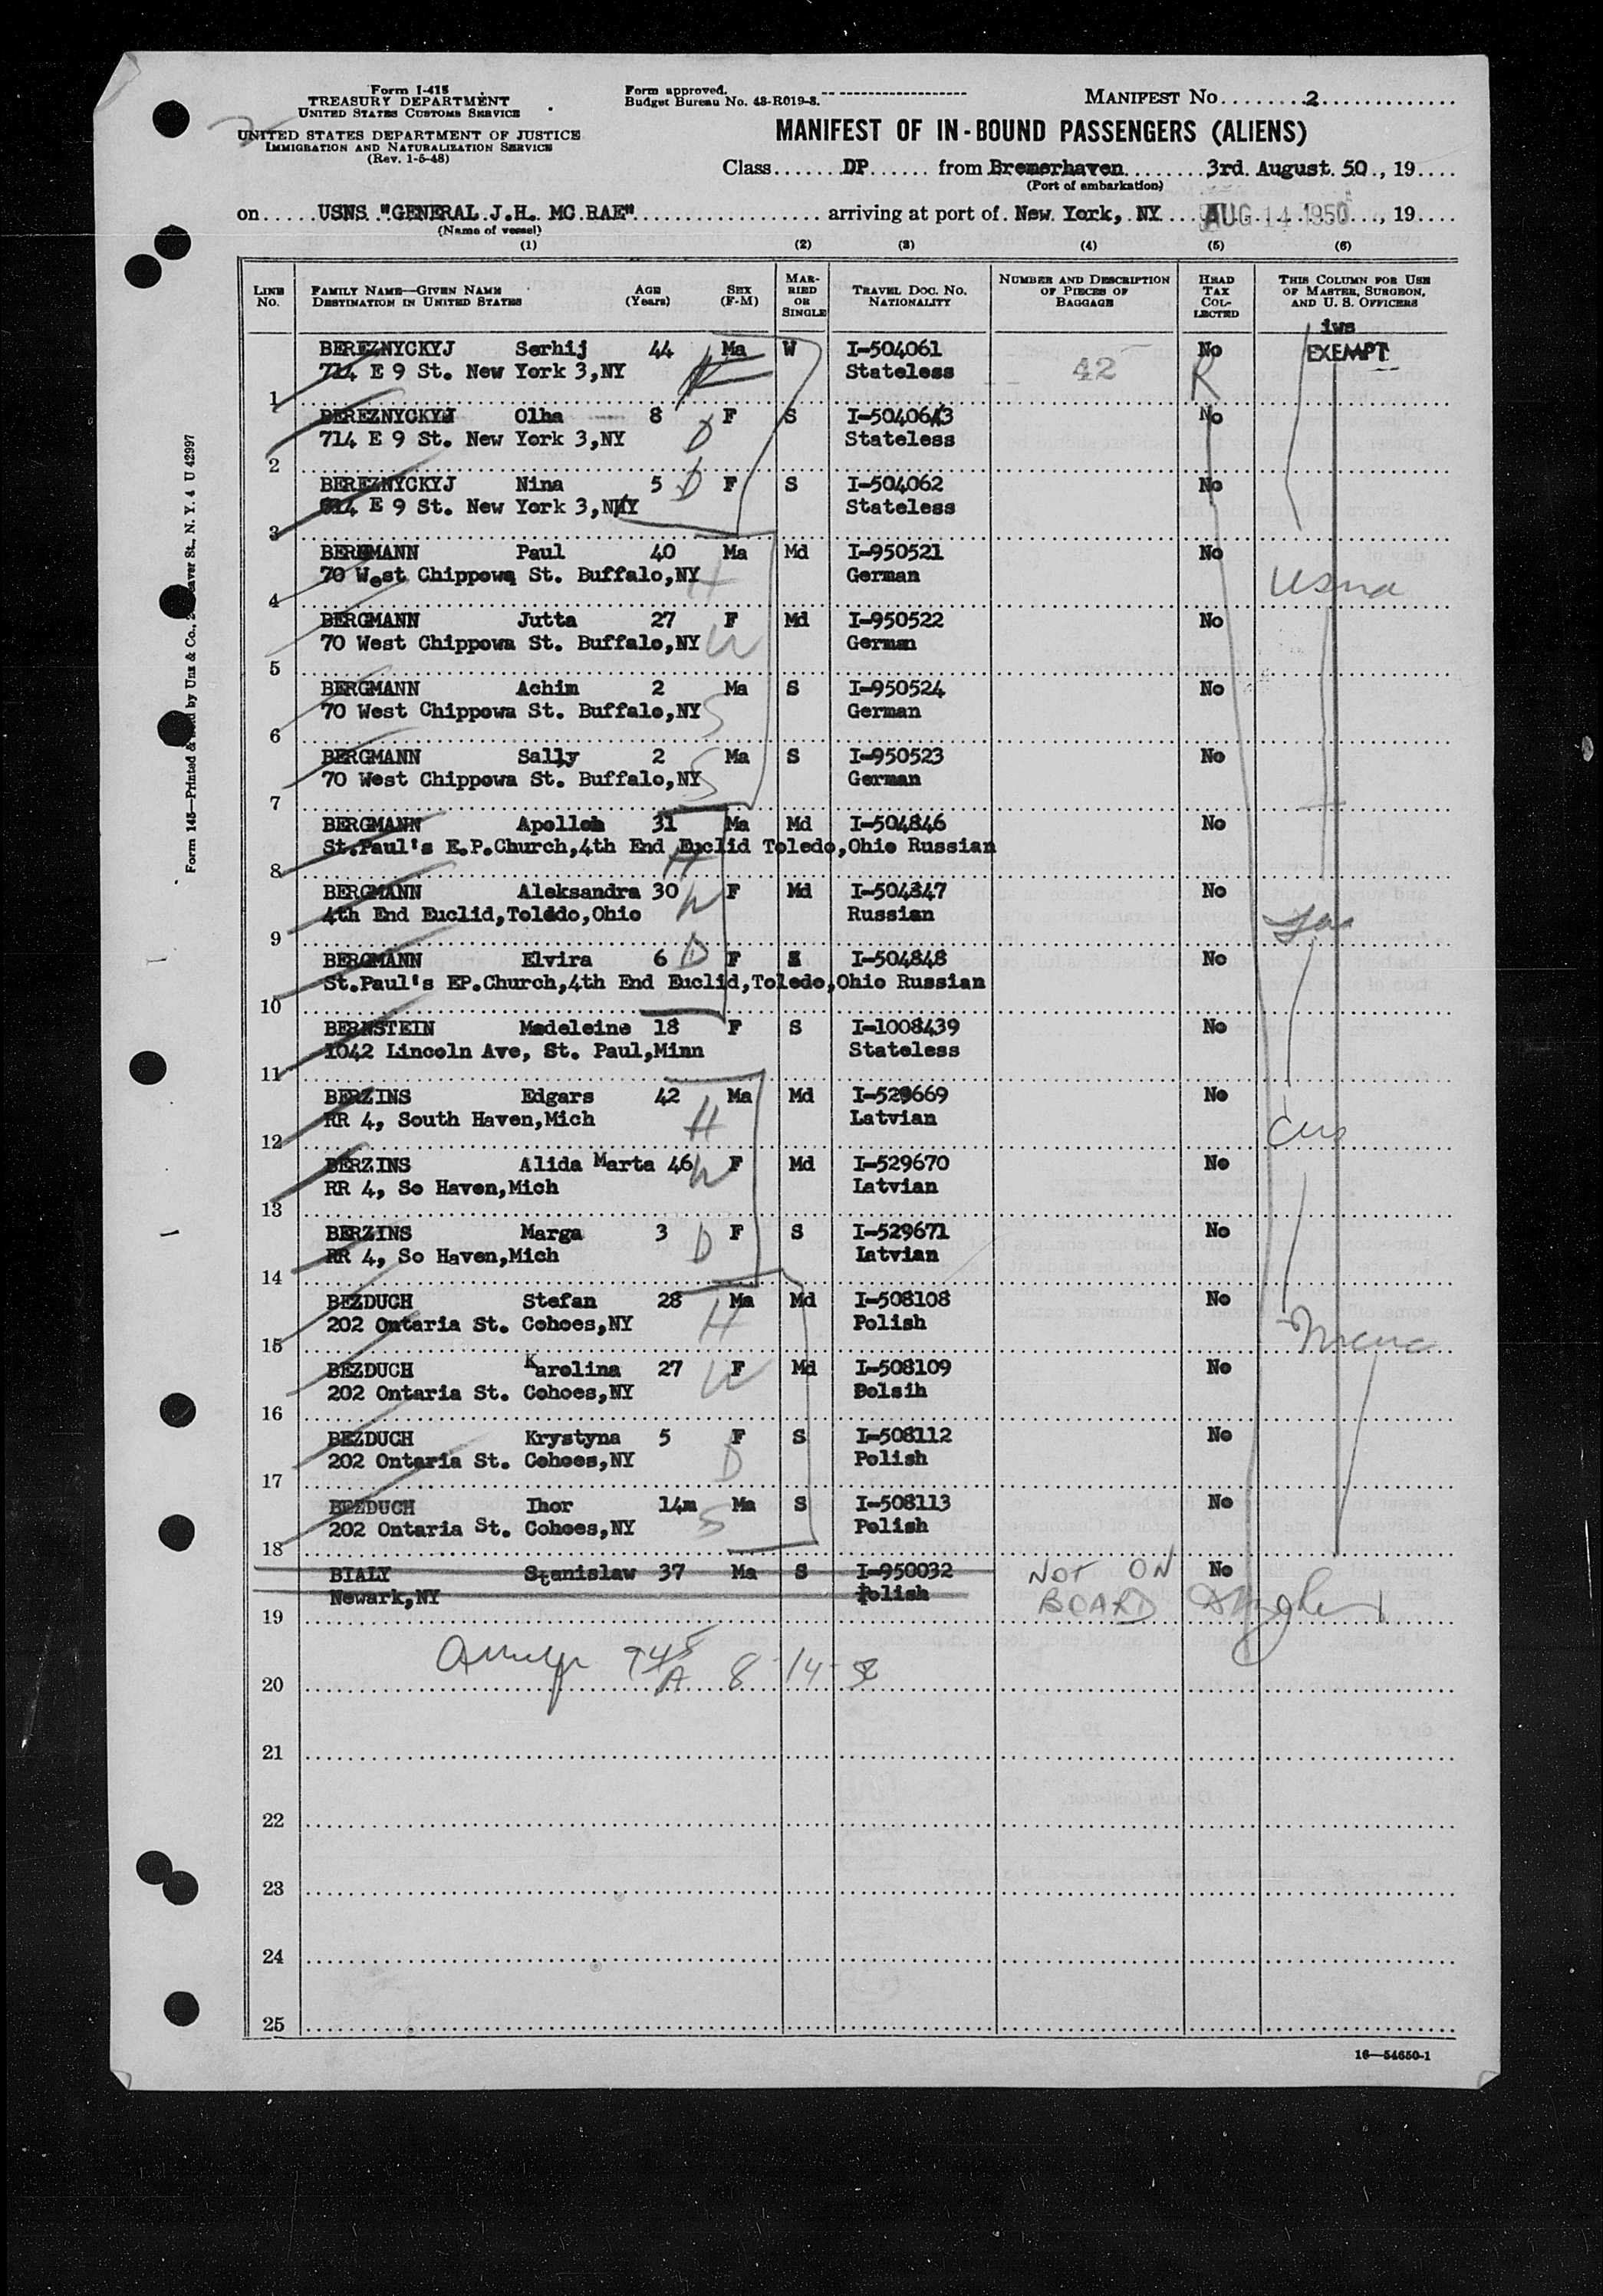 Form I-415
TREASURY DEPARTMENT
UNITED STATES CUSTOMS SERVICE
UNITED STATES DEPARTMENT OF JUSTICE
IMMIGRATION AND NATURALIZATION SERVICE
(Rev. 1-5-48)
Form approved.
Budget Bureau No. 43-R019-3.
MANIFEST NO. 2
MANIFEST OF IN-BOUND PASSENGERS (ALIENS)
Class DP from Bremerhaven 3rd August 50, 19
(Port of embarkation)
on USNS "GENERAL J.H. MC RAE" arriving at port of New York, NY AUG 14 1950, 19
(Name of vessel)
(1) (2) (3) (4) (5) (6)
LINE NO. FAMILY NAME—GIVEN NAME DESTINATION IN UNITED STATES AGE (Years) SEX (F-M) MARRIED OR SINGLE TRAVEL DOC. NO. NATIONALITY NUMBER AND DESCRIPTION OF PIECES OF BAGGAGE HEAD TAX COLLECTED THIS COLUMN FOR USE OF MASTER, SURGEON, AND U. S. OFFICERS
iws
BEREZNYCKYJ Serhij 44 Ma W I-504061 No EXEMPT
714 E 9 St. New York 3,NY Stateless 42 R
1
BEREZNYCKYJ Olha 8 F S I-504063 No
714 E 9 St. New York 3,NY D Stateless
2
BEREZNYCKYJ Nina 5 D F S I-504062 No
714 E 9 St. New York 3,NY Stateless
3
BERGMANN Paul 40 Ma Md I-950521 No
70 West Chippowa St. Buffalo,NY H German
4
BERGMANN Jutta 27 F Md I-950522 No
70 West Chippowa St. Buffalo,NY W German
5
BERGMANN Achim 2 Ma S I-950524 No
70 West Chippowa St. Buffalo,NY S German
6
BERGMANN Sally 2 Ma S I-950523 No
70 West Chippowa St. Buffalo,NY S German
7
BERGMANN Apollon 31 Ma Md I-504846 No
St.Paul's E.P.Church,4th End Euclid Toledo,Ohio Russian
8 H
BERGMANN Aleksandra 30 W F Md I-504847 No
4th End Euclid,Toledo,Ohio Russian
9
BERGMANN Elvira 6 D F S I-504848 No
St.Paul's EP.Church,4th End Euclid,Toledo,Ohio Russian
10
BERNSTEIN Madeleine 18 F S I-1008439 No
1042 Lincoln Ave, St. Paul,Minn Stateless
11
BERZINS Edgars 42 Ma Md I-529669 No
RR 4, South Haven,Mich H Latvian
12
BERZINS Alida Marta 46 W F Md I-529670 No
RR 4, So Haven,Mich Latvian
13
BERZINS Marga 3 D F S I-529671 No
RR 4, So Haven,Mich Latvian
14
BEZDUCH Stefan 28 Ma Md I-508108 No
202 Ontaria St. Cohoes,NY H Polish
15
BEZDUCH Karolina 27 F Md I-508109 No
202 Ontaria St. Cohoes,NY W Polsih
16
BEZDUCH Krystyna 5 F S I-508112 No
202 Ontaria St. Cohoes,NY D Polish
17
BEZDUCH Ihor 14m Ma S I-508113 No
202 Ontaria St. Cohoes,NY S Polish
18
BIALY Stanislaw 37 Ma S I-950032 NOT ON No
Newark,NY Polish BOARD
19
945 A 8-14-50
20
21
22
23
24
25
16—54650-1
Form 145—Printed & by Unz & Co., eaver St., N. Y. 4 U 42997